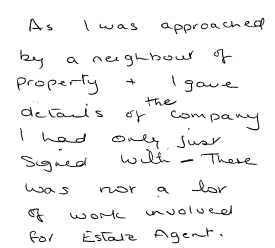 As I was approached
by a neighbour of
property + I gave
details of the company
I had only just
signed with - There
was not a lot
of work involved
for Estate Agent.